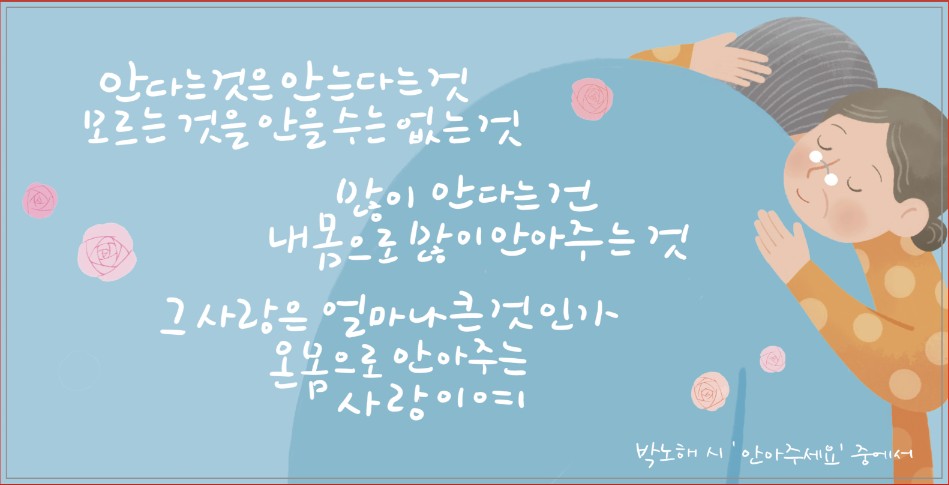 안다는것은 안는다는것
모르는 것을 안을 수는 없는 것
많이 안다는 건
내 몸으로 많이 안아주는 것
그 사랑은 얼마나 큰 것인가
온몸으로 안아주는
사랑이여
박노해 시 '안아주세요' 중에서